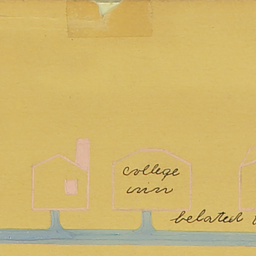 college
inn
belated